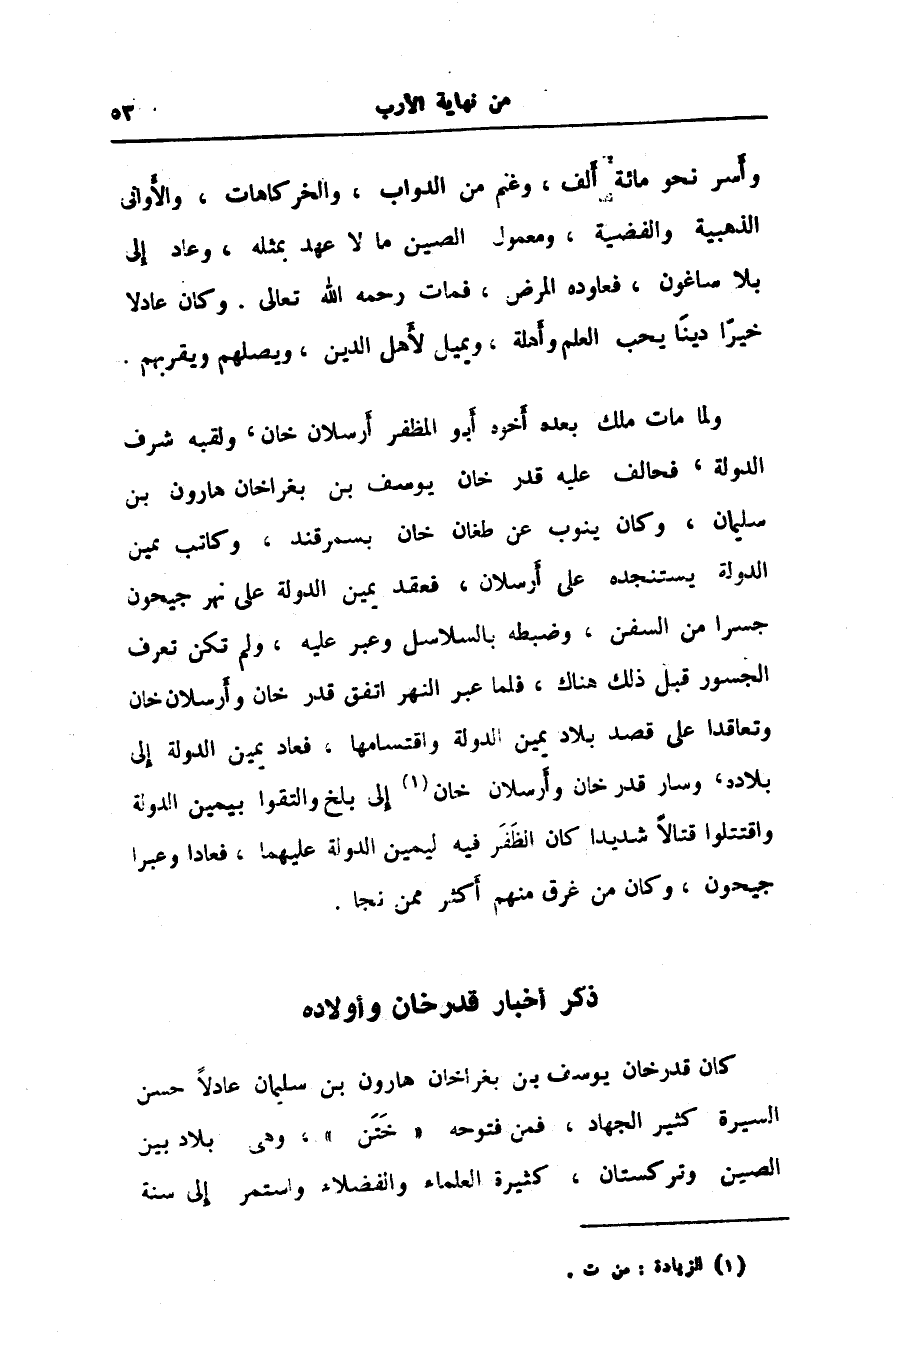 من نهاية الأرب ٥٣
وأسر نحو مائة ألف ، وغنم من الدواب ، والخركاهات ، والأوانى
الذهبية والفضية ، ومعمول الصين ما لا عهد بمثله ، وعاد إلى
بلا ساغون ، فعاوده المرض ، فمات رحمه الله تعالى . وكان عادلا
خيرًا دينًا يحب العلم وأهلة ، ويميل لأهل الدين ، ويصلهم ويقربهم .
ولما مات ملك بعده أخوه أبو المظفر أرسلان خان ، ولقبه شرف
الدولة ، فحالف عليه قدر خان يوسف بن بغراخان هارون بن
سليمان ، وكان ينوب عن طغان خان بسمرقند ، وكاتب يمين
الدولة يستنجده على أرسلان ، فعقد يمين الدولة على نهر جيحون
جسرا من السفن ، وضبطه بالسلاسل وعبر عليه ، ولم تكن تعرف
الجسور قبل ذلك هناك ، فلما عبر النهر اتفق قدر خان وأرسلان خان
وتعاقدا على قصد بلاد يمين الدولة واقتسامها ، فعاد يمين الدولة إلى
بلاده ، وسار قدر خان وأرسلان خان (١) إلى بلخ والتقوا بيمين الدولة
واقتتلوا قتالاً شديدا كان الظَفَر فيه ليمين الدولة عليهما ، فعادا وعبرا
جيحون ، وكان من غرق منهم أكثر ممن نجا .
ذكر أخبار قدرخان وأولاده
كان قدرخان يوسف بن بغراخان هارون بن سليمان عادلاً حسن
السيرة كثير الجهاد ، فمن فتوحه « خَتَن » ، وهى بلاد بين
الصين وتركستان ، كثيرة العلماء والفضلاء واستمر إلى سنة
(١) الزيادة : من ت .